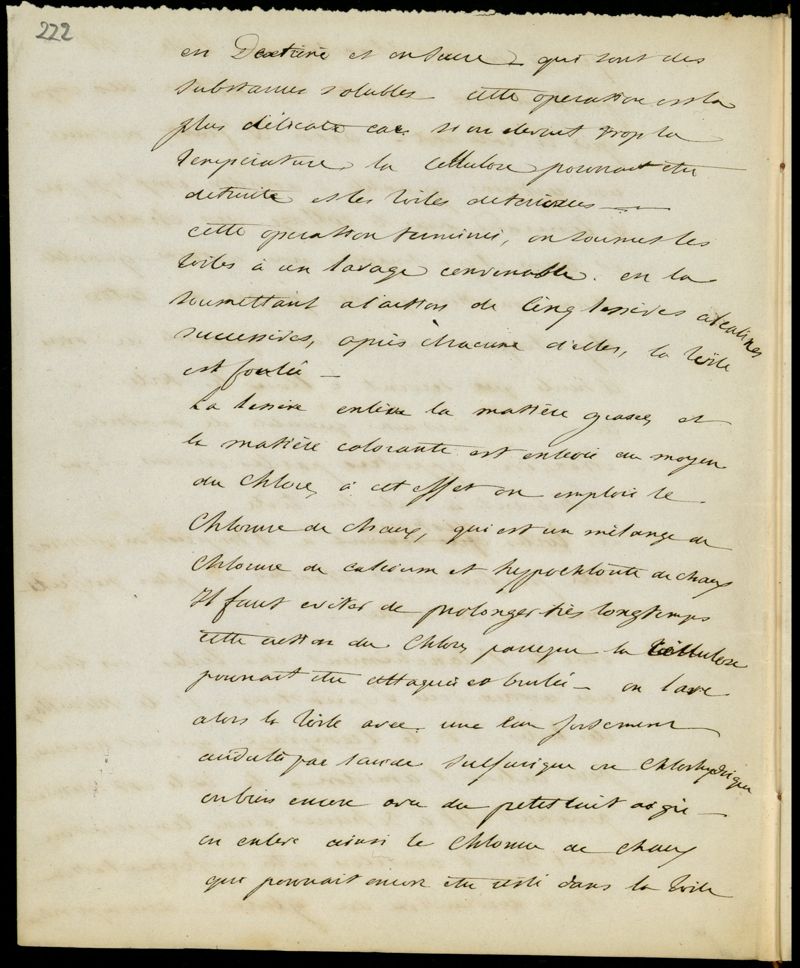 222
en Dextrine et en sucre qui sont des
substances solubles cette operation est la
plus délicate car si on élevait trop la
température, la cellulose pourrait être
detruite et les toiles deteriorées —
cette operation terminée, on soumet les
toiles à un lavage convenable. en la
soumettant a laction de cinq lessives alcalines
successives, après chacune d'elles, la toile
est foulée —
La lessive enlève la matière grasse, et
la matière colorante est enlevée au moyen
du Chlore, à cet effet on emploie le
Chlorure de chaux, qui est un mélange de
Chlorure de calcium et hypochlorite de chaux
Il faut eviter de prolonger très longtemps
cette action du Chlore, parceque la Cellulose
pourrait être attaquée et brulée — on lave
alors la toile avec une eau fortement
acidulée par lacide sulfurique ou Chlorhydrique
ou bien encore avec du petit lait aigri —
on enlève ainsi le Chlorure de chaux
qui pourrait encore être resté dans la toile